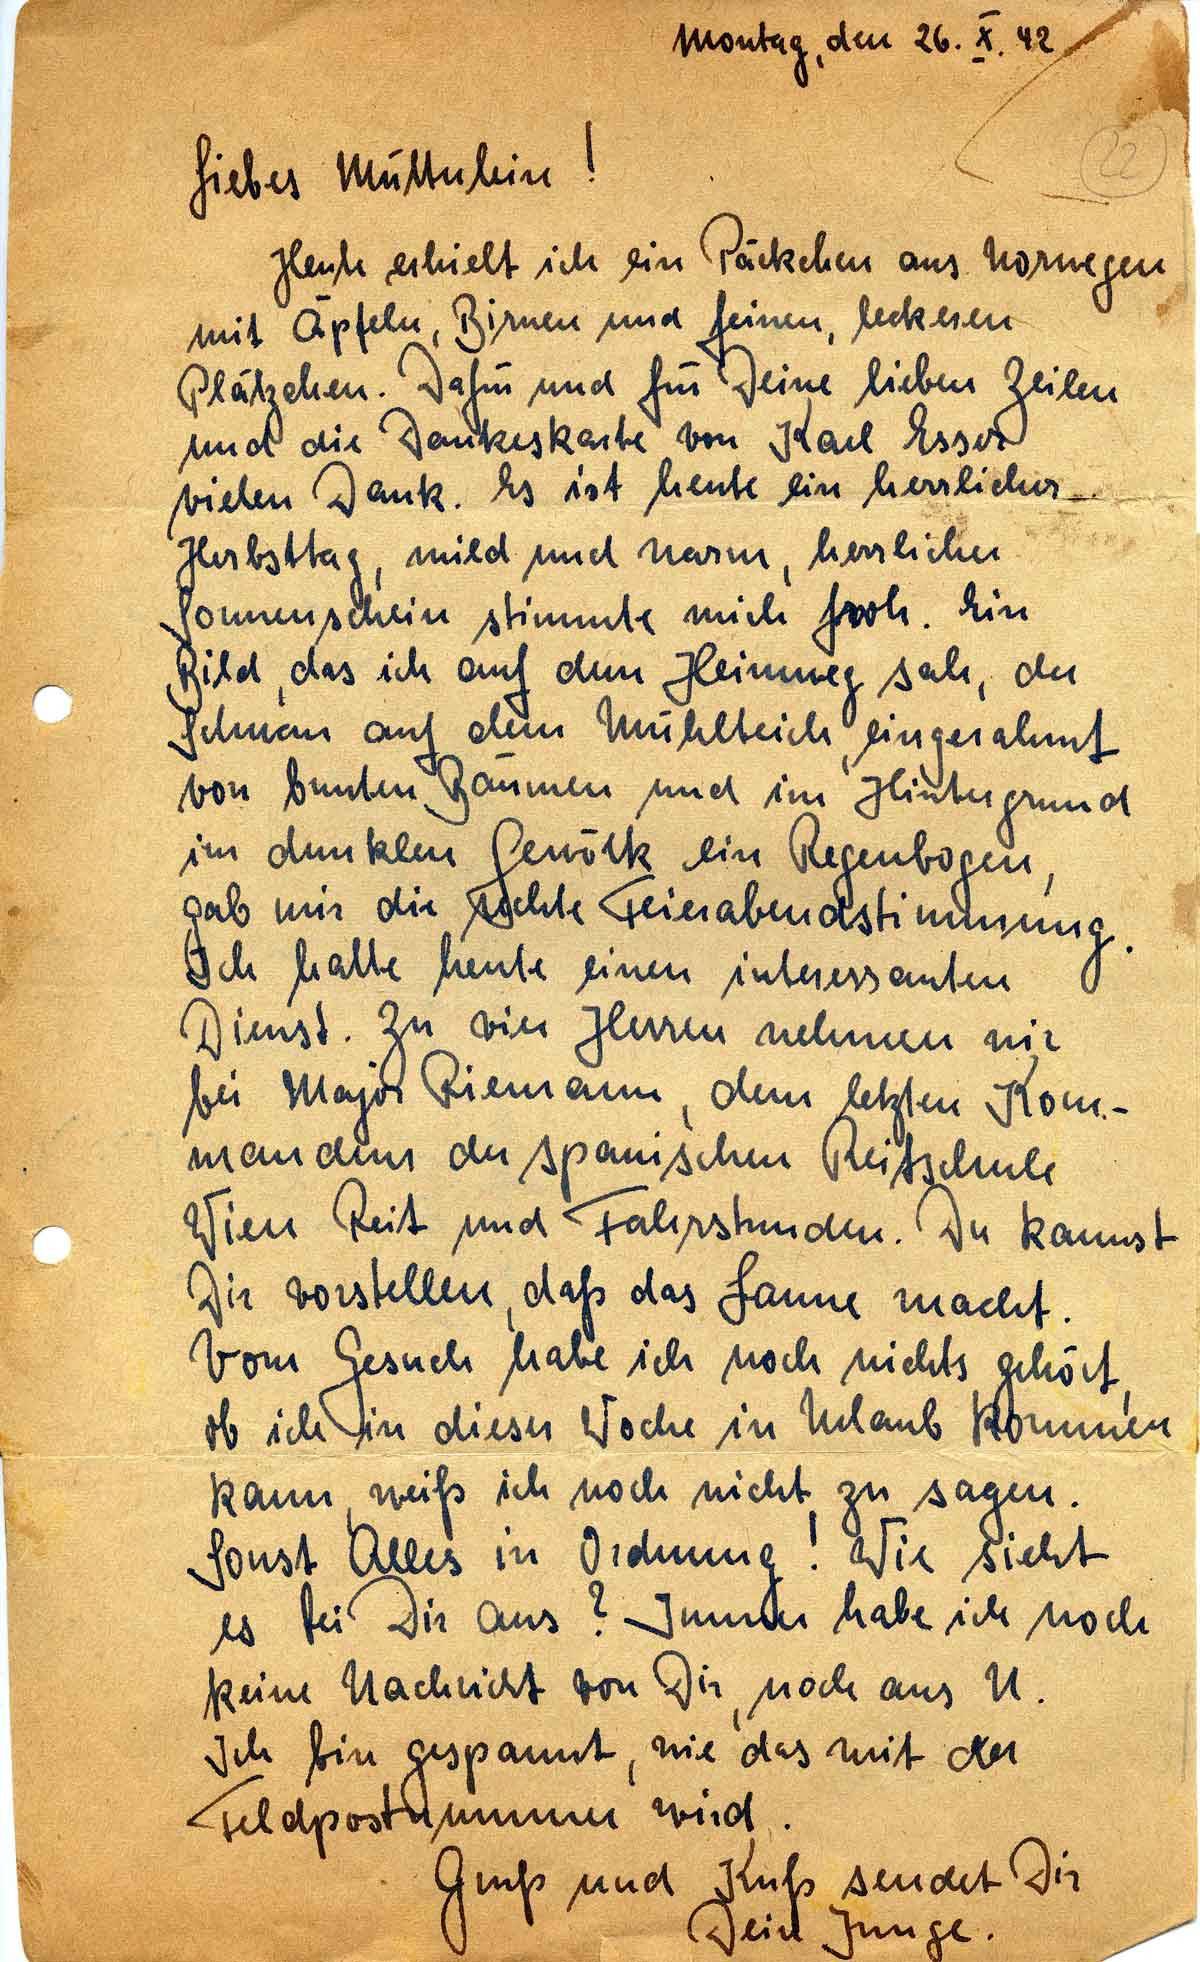 Montag, den 26. X. 42
22
Liebes Mütterlein!
Heute erhielt ich ein Päckchen aus Norwegen
mit Äpfeln, Birnen und feinen, leckeren
Plätzchen. Dafür und für Deine lieben Zeilen
und die Dankeskarte von Karl Esser
vielen Dank. Es ist heute ein herrlicher
Herbsttag, mild und warm, herrlicher
Sonnenschein stimmte mich froh. Ein
Bild, das ich auf dem Heimweg sah, der
Schwan auf dem Mühlteich, eingerahmt
von bunten Bäumen und im Hintergrund
im dunklen Gewölk ein Regenbogen,
gab mir die rechte Feierabendstimmung.
Ich hatte heute einen interessanten
Dienst. Zu vier Herren nehmen wir
bei Major Riemann, dem letzten Kom-
mandeur der spanischen Reitschule
Wien Reit und Fahrstunden. Du kannst
Dir vorstellen, daß das Laune macht.
Vom Gesuch habe ich noch nichts gehört,
ob ich in dieser Woche in Urlaub kommen
kann, weiß ich noch nicht zu sagen.
Sonst Alles in Ordnung! Wie sieht
es bei Dir aus? Immer habe ich noch
keine Nachricht von Dir, noch aus N.
Ich bin gespannt, wie das mit der
Feldpostnummer wird.
Gruß und Kuß sendet Dir
Dein Junge.